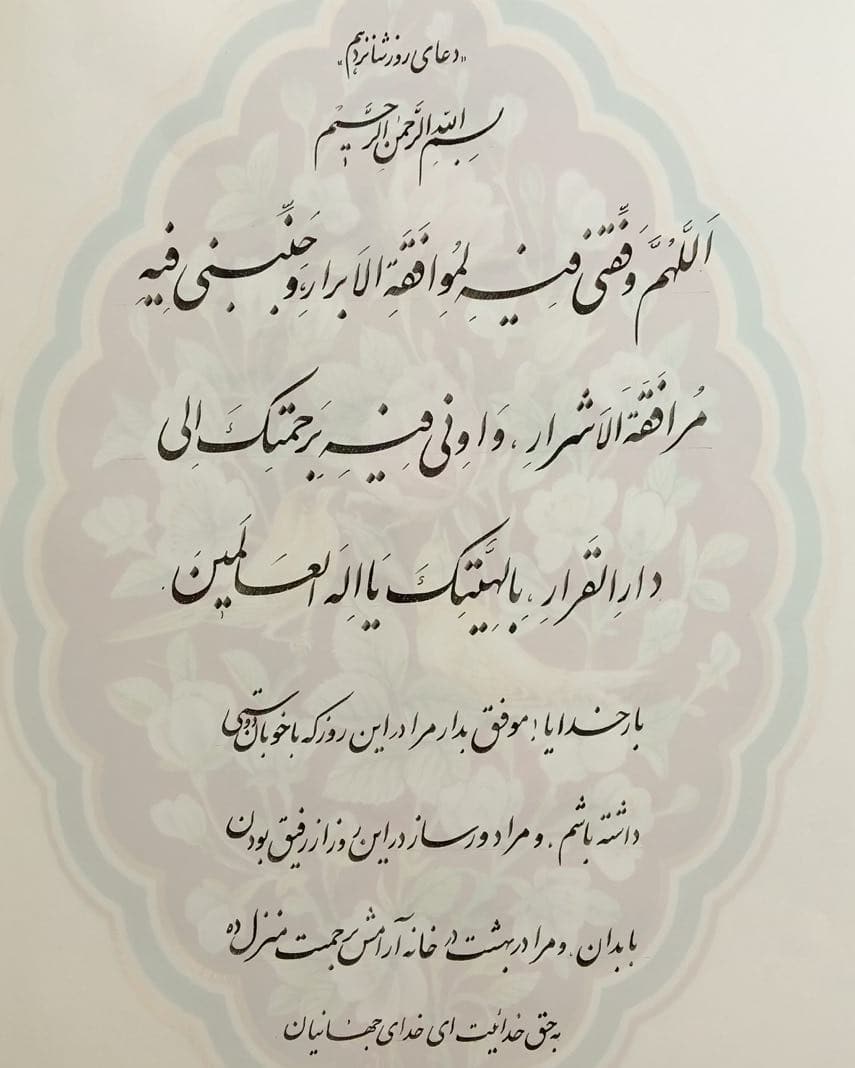 «دعای روز شانزدهم»
بِسمِ اللهِ الرَّحمٰنِ الرَّحیمِ
اَللّٰهُمَّ وَفِّقنی فیهِ لِمُوافَقَةِ الاَبرارِ، وَجَنِّبنی فیهِ
مُرافَقَةَ الاَشرارِ، وَاوِنی فیهِ بِرَحمَتِکَ اِلی
دارِ القَرارِ، بِالهِیَّتِکَ یا اِلهَ العَالَمینَ.
بارخدایا! موفق بدار مرا در این روز که با خوبان دوستی
داشته باشم. و مرا دور ساز در این روز از رفیق بودن
با بدان. و مرا در بهشت در خانه آرامش برحمتت منزل ده
به حق خدائیت ای خدای جهانیان